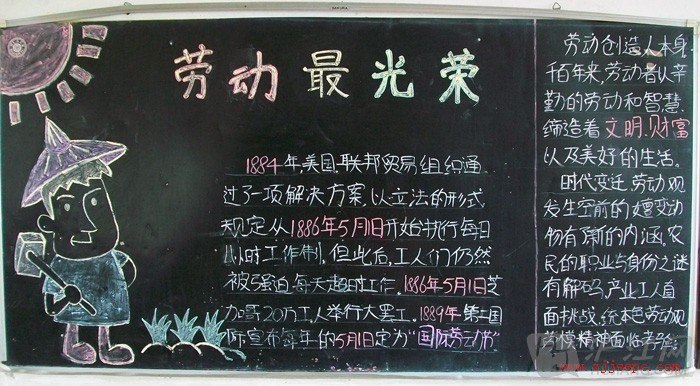 劳动最光荣
1884年,美国联邦贸易组织通
过了一项解决方案以立法的形式
规定从1886年5月1日开始执行每日
八小时工作制,但此后,工人们仍然
被强迫每天超时工作.1886年5月1日芝
加哥20万工人举行大罢工.1889年第二国
际宣布每年的5月1日定为"国际劳动节"
劳动创造人本身
千百年来,劳动者以辛
勤的劳动和智慧,
缔造着文明、财富
以及美好的生活。
时代变迁 劳动观
发生空前的嬗变 动
物有了新的内涵,农
民的职业与身份之谜
有解码,产业工人直
面挑战,传统本色劳动观
劳模精神面临考验
沪江网